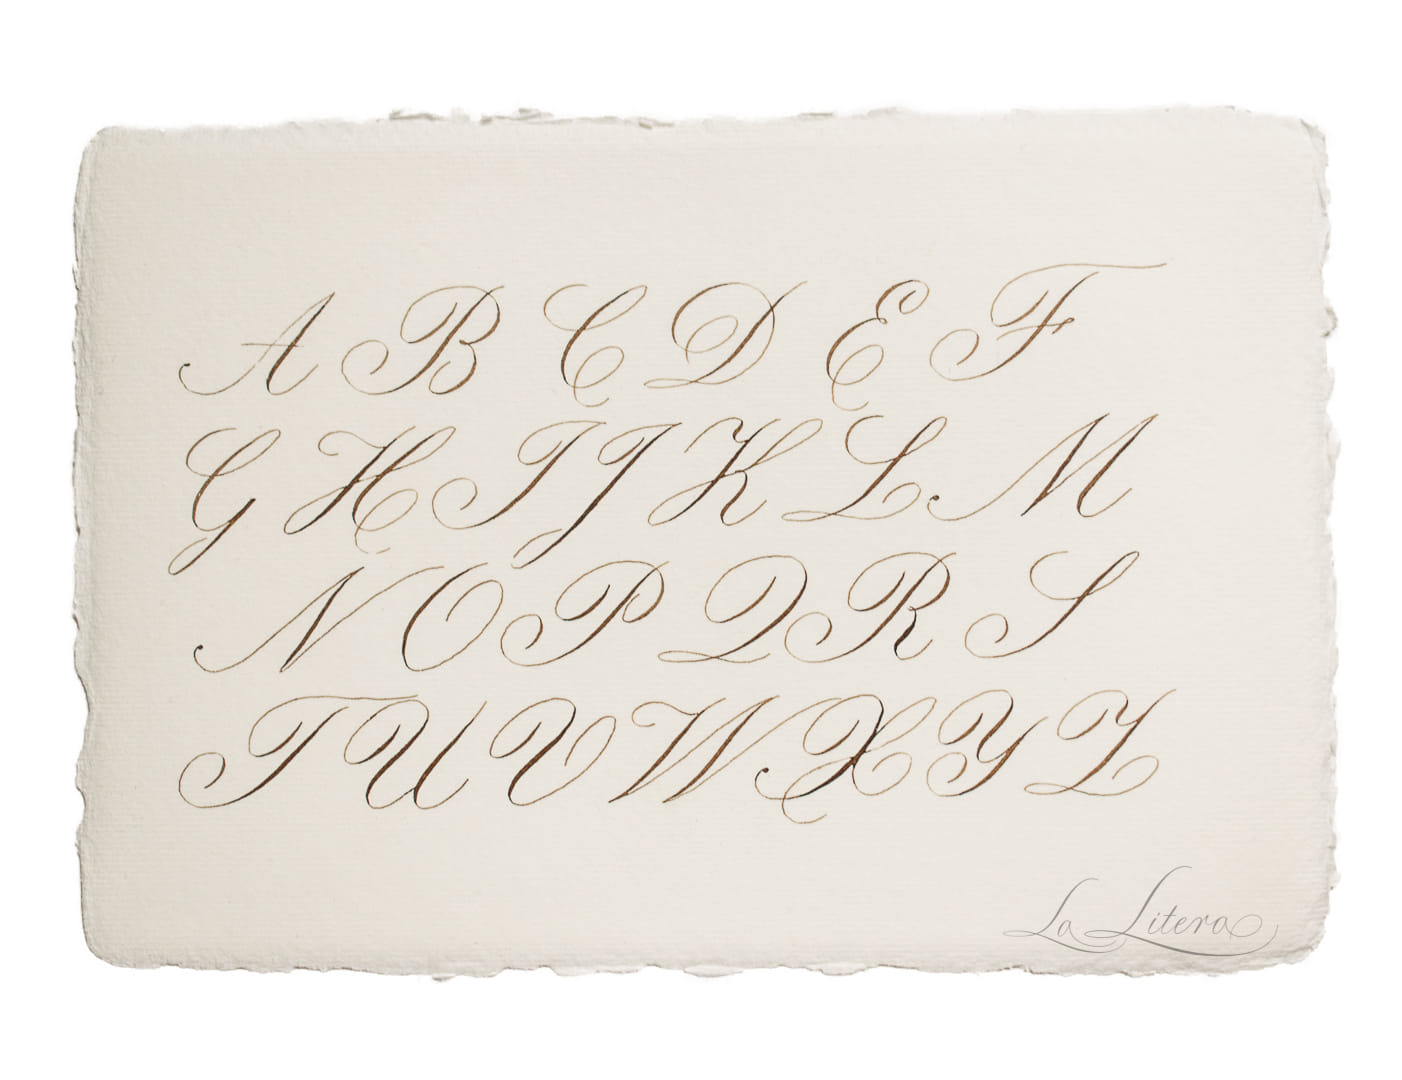 A B C D E F
G H I J K L M
N O P Q R S
T U V W X Y Z
La Litera